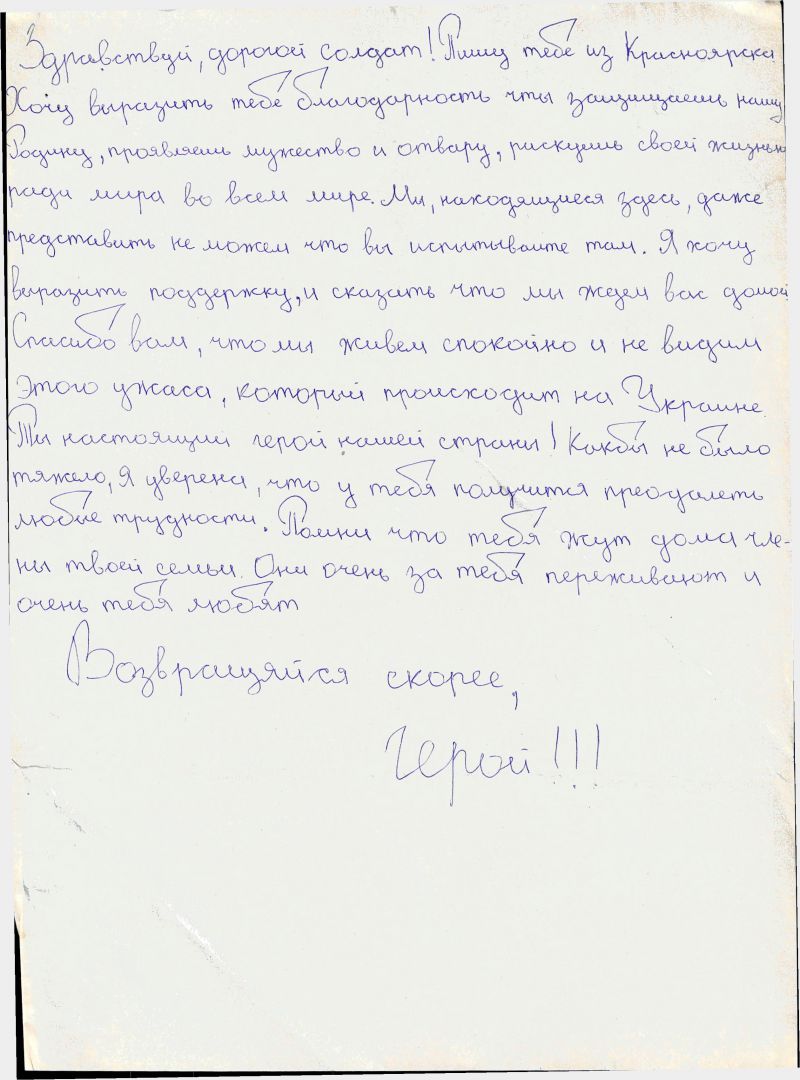 Здравствуй, дорогой солдат! Пишу тебе из Красноярска
Хочу выразить тебе благодарность что защищаешь нашу
Родину, проявляешь мужество и отвагу, рискуешь своей жизнью
ради мира во всем мире. Мы, находящиеся здесь, даже
представить не можем что вы испытываите там. Я хочу
выразить поддержку, и сказать что мы ждем вас домой
Спасибо вам, что мы живем спокойно и не видим
этого ужаса, который происходит на Украине.
Ты настоящий герой нашей страны! Какбы не было
тяжело, я уверена, что у тебя получится преодалеть
любые трудности. Помни что тебя ждут дома чле-
ны твоей семьи. Они очень за тебя переживают и
очень тебя любят
Возвращяйся скорее,
Герой!!!